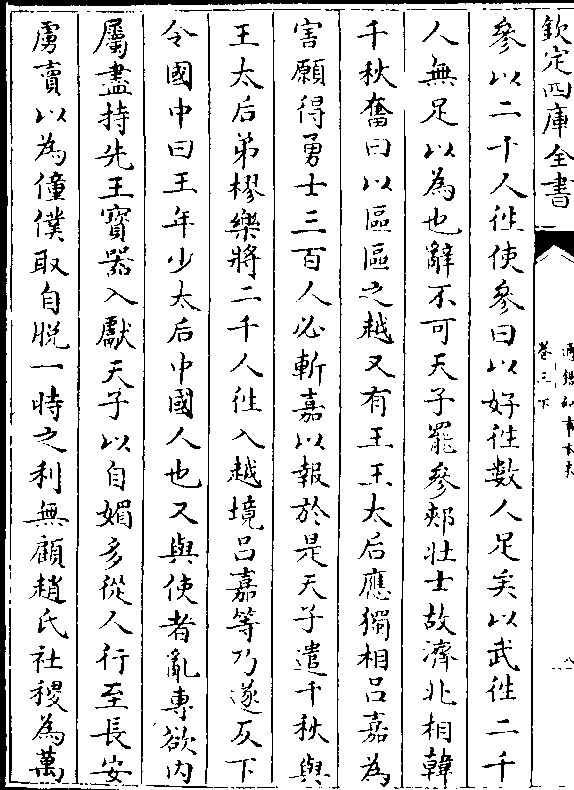 欽定四庫全書
卷三下
參以二千人往使參曰以好往數人足矣以武往二千
人無足以為也辭不可天子罷參郟壯士故濟北相韓
千秋奮曰以區區之越又有王王太后應獨相呂嘉為
害願得勇士三百人必斬嘉以報於是天子遣千秋與
王太后弟樛樂將二千人往入越境呂嘉等乃遂反下
令國中曰王年少太后中國人也又與使者亂專欲內
屬盡持先王寶器入獻天子以自媚多從人行至長安
虜賣以為僮僕取自脫一時之利無顧趙氏社稷為萬